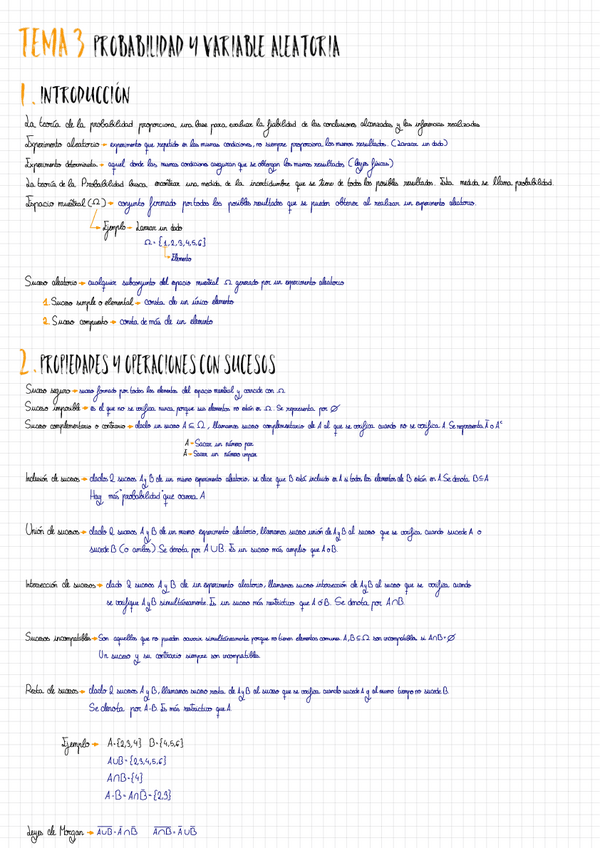 TEMA 3 PROBABILIDAD Y VARIABLE ALEATORIA
1. INTRODUCCIÓN
La teoría de la probabilidad proporciona una base para evaluar la fiabilidad de las conclusiones alcanzadas y las inferencias realizadas
Experimento aleatorio → experimento que repetido en las mismas condiciones, no siempre proporciona los mismos resultados. (Lanzar un dado)
Experimento determinista → aquel donde las mismas condiciones aseguran que se obtengan los mismos resultados (leyes físicas)
La teoría de la Probabilidad busca encontrar una medida de la incertidumbre que se tiene de todos los posibles resultados. Esta medida se llama probabilidad.
Espacio muestral (Ω) → conjunto formado por todos los posibles resultados que se pueden obtener al realizar un experimento aleatorio.
Ejemplo → Lanzar un dado
Ω = {1,2,3,4,5,6}
Elemento
Suceso aleatorio → cualquier subconjunto del espacio muestral Ω generado por un experimento aleatorio
1. Suceso simple o elemental → consta de un único elemento
2. Suceso compuesto → consta de más de un elemento
2. PROPIEDADES Y OPERACIONES CON SUCESOS
Suceso seguro → suceso formado por todos los elementos del espacio muestral y coincide con Ω
Suceso imposible → es el que no se verifica nunca, porque sus elementos no están en Ω. Se representa por Ø
Suceso complementario o contrario → dado un suceso A ⊆ Ω, llamamos suceso complementario de A al que se verifica cuando no se verifica A. Se representa Ā o Aᶜ
A - Sacar un número par
Ā - Sacar un número impar
Inclusión de sucesos → dados 2 sucesos A y B de un mismo experimento aleatorio, se dice que B está incluido en A si todos los elementos de B están en A. Se denota B⊆A
Hay más "probabilidad" que ocurra A
Unión de sucesos → dado 2 sucesos A y B de un mismo experimento aleatorio, llamamos suceso unión de A y B al suceso que se verifica cuando sucede A o
sucede B (o ambos). Se denota por A∪B. Es un suceso más amplio que A o B.
Intersección de sucesos → dado 2 sucesos A y B de un experimento aleatorio, llamamos suceso intersección de A y B al suceso que se verifica cuando
se verifique A y B simultáneamente. Es un suceso más restrictivo que A o B. Se denota por A∩B.
Sucesos incompatibles → Son aquellos que no pueden ocurrir simultáneamente porque no tienen elementos comunes. A,B⊆Ω son incompatibles si A∩B=Ø
Un suceso y su contrario siempre son incompatibles.
Resta de sucesos → dado 2 sucesos A y B, llamamos suceso resta de A y B al suceso que se verifica cuando sucede A y al mismo tiempo no sucede B.
Se denota por A-B. Es más restrictivo que A.
Ejemplo → A={2,3,4} B={4,5,6}
A∪B={2,3,4,5,6}
A∩B={4}
A-B=A∩B̅={2,3}
Leyes de Morgan → A̅∪̅B̅=A̅∩B̅ A̅∩̅B̅=A̅∪B̅